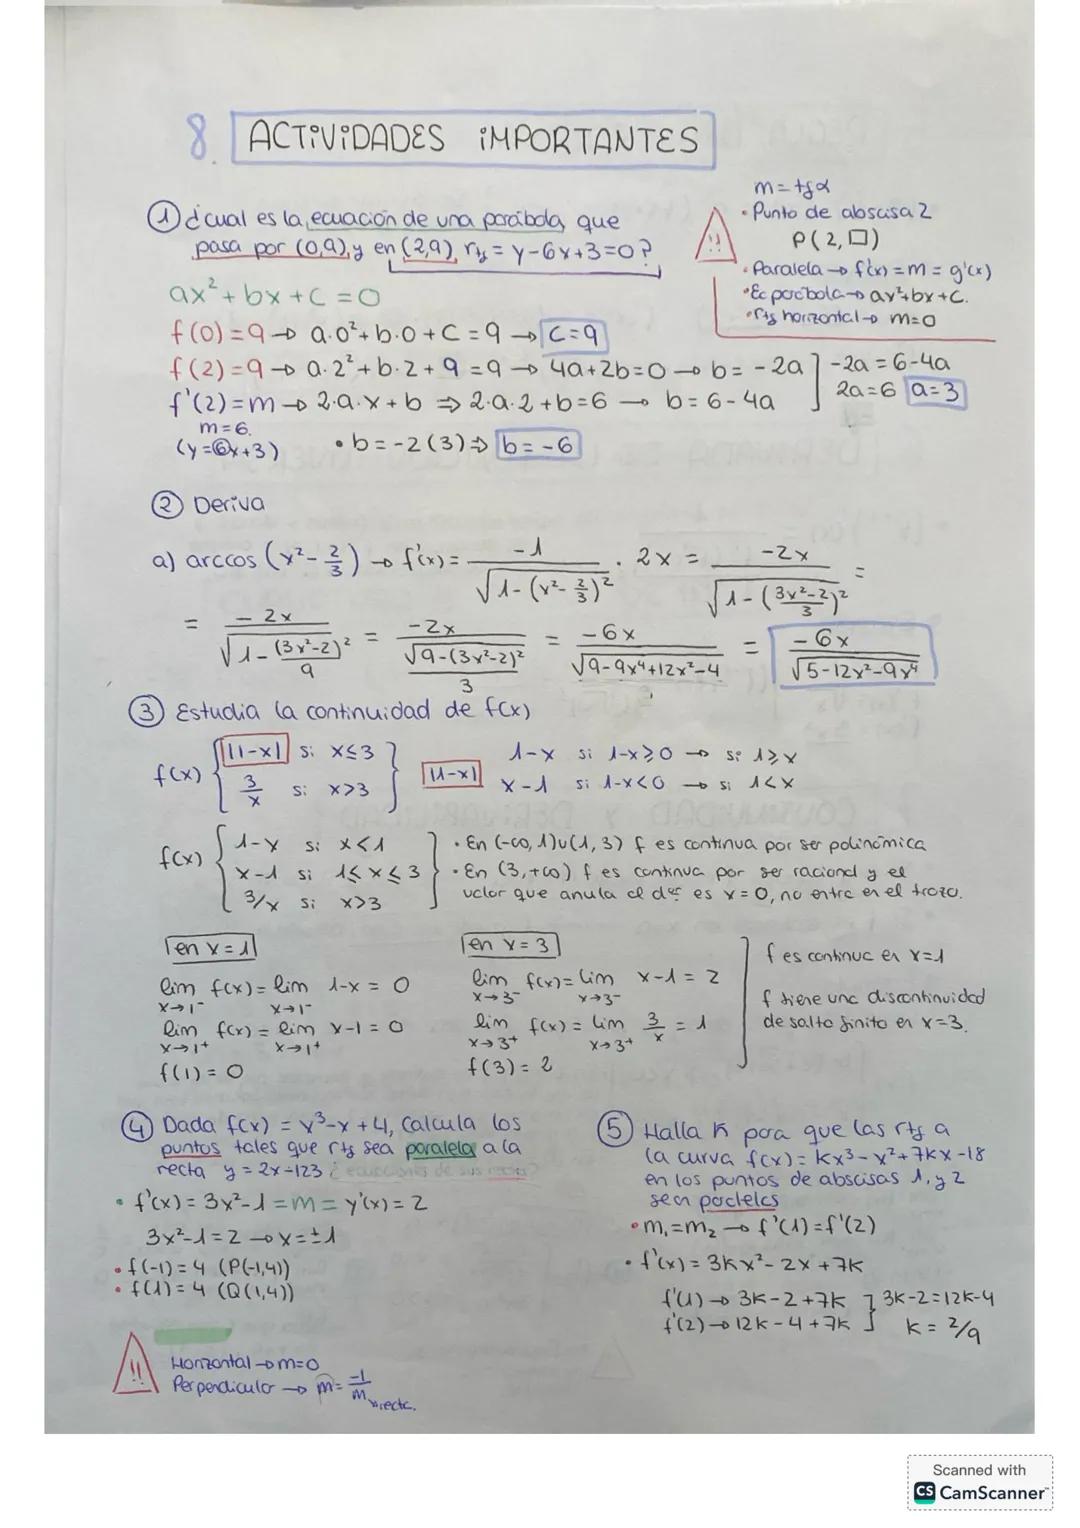 8. ACTIVIDADES IMPORTANTES
m = tgα
• Punto de abscisa 2
P(2, □)
• Paralela → f'(x) = m = g'(x)
• Ec parábola → ax²+bx+c.
• rtg horizontal → m=0
!!
① ¿cual es la ecuación de una parábola que
pasa por (0,9) y en (2,9), rtg = y-6x+3=0?
ax²+bx+c=0
f(0)=9 → a·0²+b·0+c=9 → c=9
f(2)=9 → a·2²+b·2+9=9 → 4a+2b=0 → b=-2a
f'(2)=m → 2·a·x+b ⇒ 2·a·2+b=6 → b=6-4a
-2a=6-4a
2a=6 a=3
m=6.
(y=6x+3)
• b=-2(3) ⇒ b=-6
② Deriva
a) arccos (x²-2/3) → f'(x) = -1/√(1-(x²-2/3)²) · 2x = -2x/√(1-((3x²-2)/3)²) =
= -2x/√(1-(3x²-2)²/9) = -2x/(√(9-(3x²-2)²)/3) = -6x/√(9-9x⁴+12x²-4) = -6x/√(5-12x²-9x⁴)
③ Estudia la continuidad de f(x)
f(x) { |1-x| si x≤3
3/x si x>3 }
|1-x| 1-x si 1-x≥0 → si 1≥x
x-1 si 1-x<0 → si 1<x
f(x) { 1-x si x<1
x-1 si 1≤x≤3
3/x si x>3 }
• En (-∞,1)∪(1,3) f es continua por ser polinómica
• En (3,+∞) f es continua por ser racional y el
valor que anula el der es x=0, no entra en el trozo.
en x=1
lim x→1⁻ f(x) = lim x→1⁻ 1-x = 0
lim x→1⁺ f(x) = lim x→1⁺ x-1 = 0
f(1)=0
en x=3
lim x→3⁻ f(x) = lim x→3⁻ x-1 = 2
lim x→3⁺ f(x) = lim x→3⁺ 3/x = 1
f(3)=2
f es continua en x=1
f tiene una discontinuidad
de salto finito en x=3.
④ Dada f(x) = x³-x+4, Calcula los
puntos tales que rtg sea paralela a la
recta y = 2x-123 ¿ecuaciones de sus rectas?
• f'(x) = 3x²-1 = m = y'(x) = 2
3x²-1=2 → x=±1
• f(-1)=4 (P(-1,4))
• f(1)=4 (Q(1,4))
!!
Horizontal → m=0
Perpendicular → m = -1/m recta.
⑤ Halla K para que las rtg a
la curva f(x) = Kx³-x²+7Kx-18
en los puntos de abscisas 1, y 2
sean paralelas
• m₁=m₂ → f'(1)=f'(2)
• f'(x) = 3Kx²-2x+7K
f'(1) → 3K-2+7K
f'(2) → 12K-4+7K
3K-2=12K-4
K = 2/9
Scanned with
CS CamScanner™